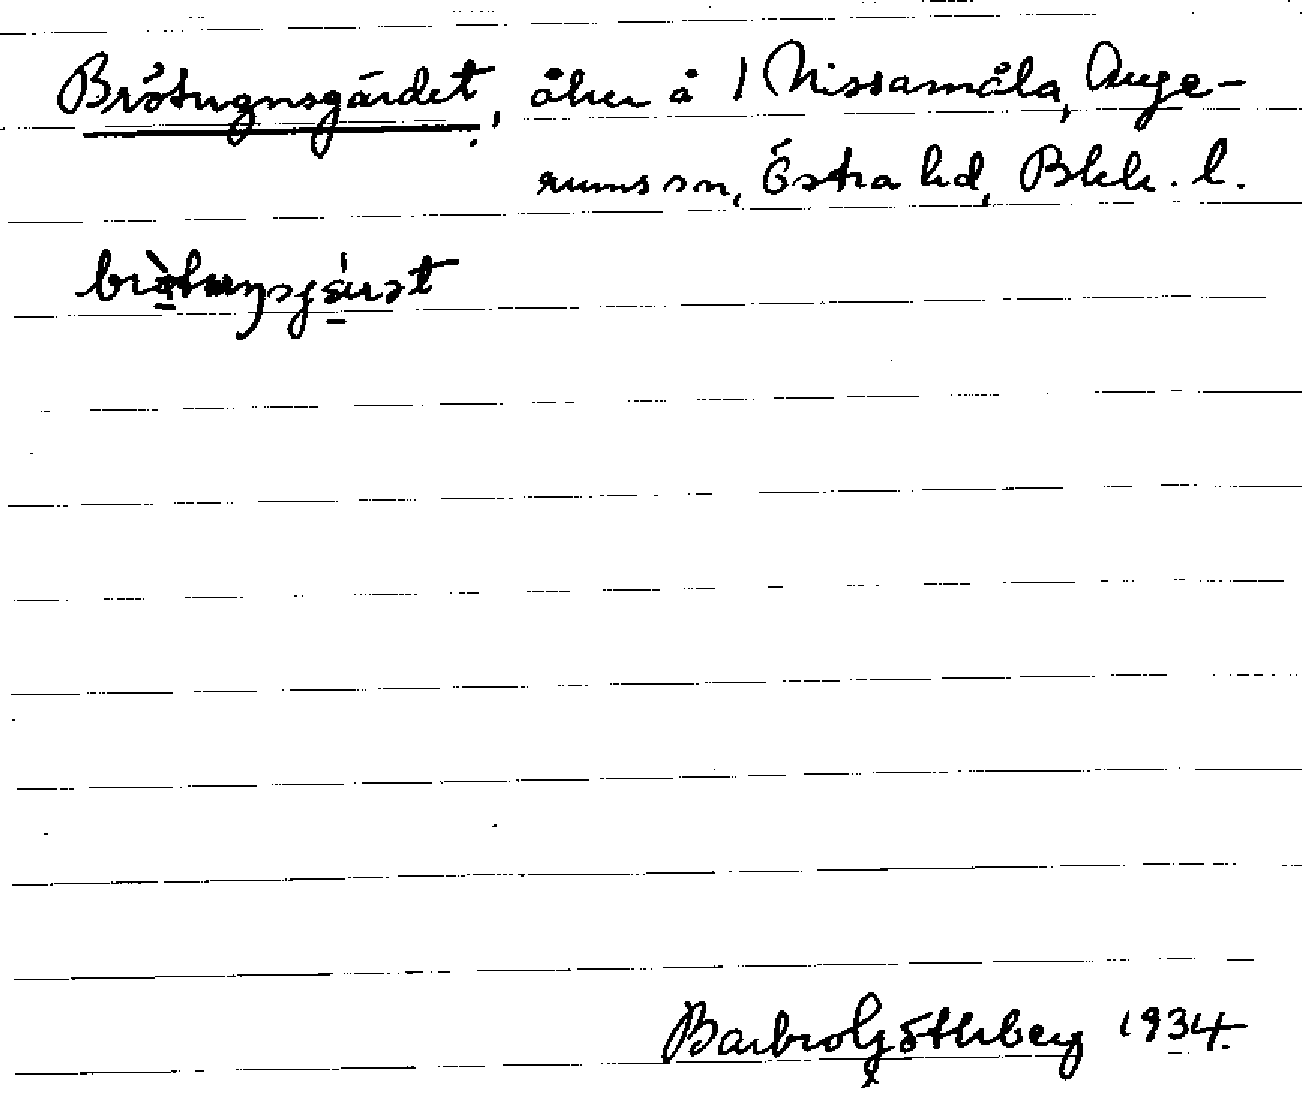 Brötugnsgärdet, åker å 1 Nissamåla, Auge-
rums sn, Östra hd, Blek. l.
Barbro Göthberg 1934.